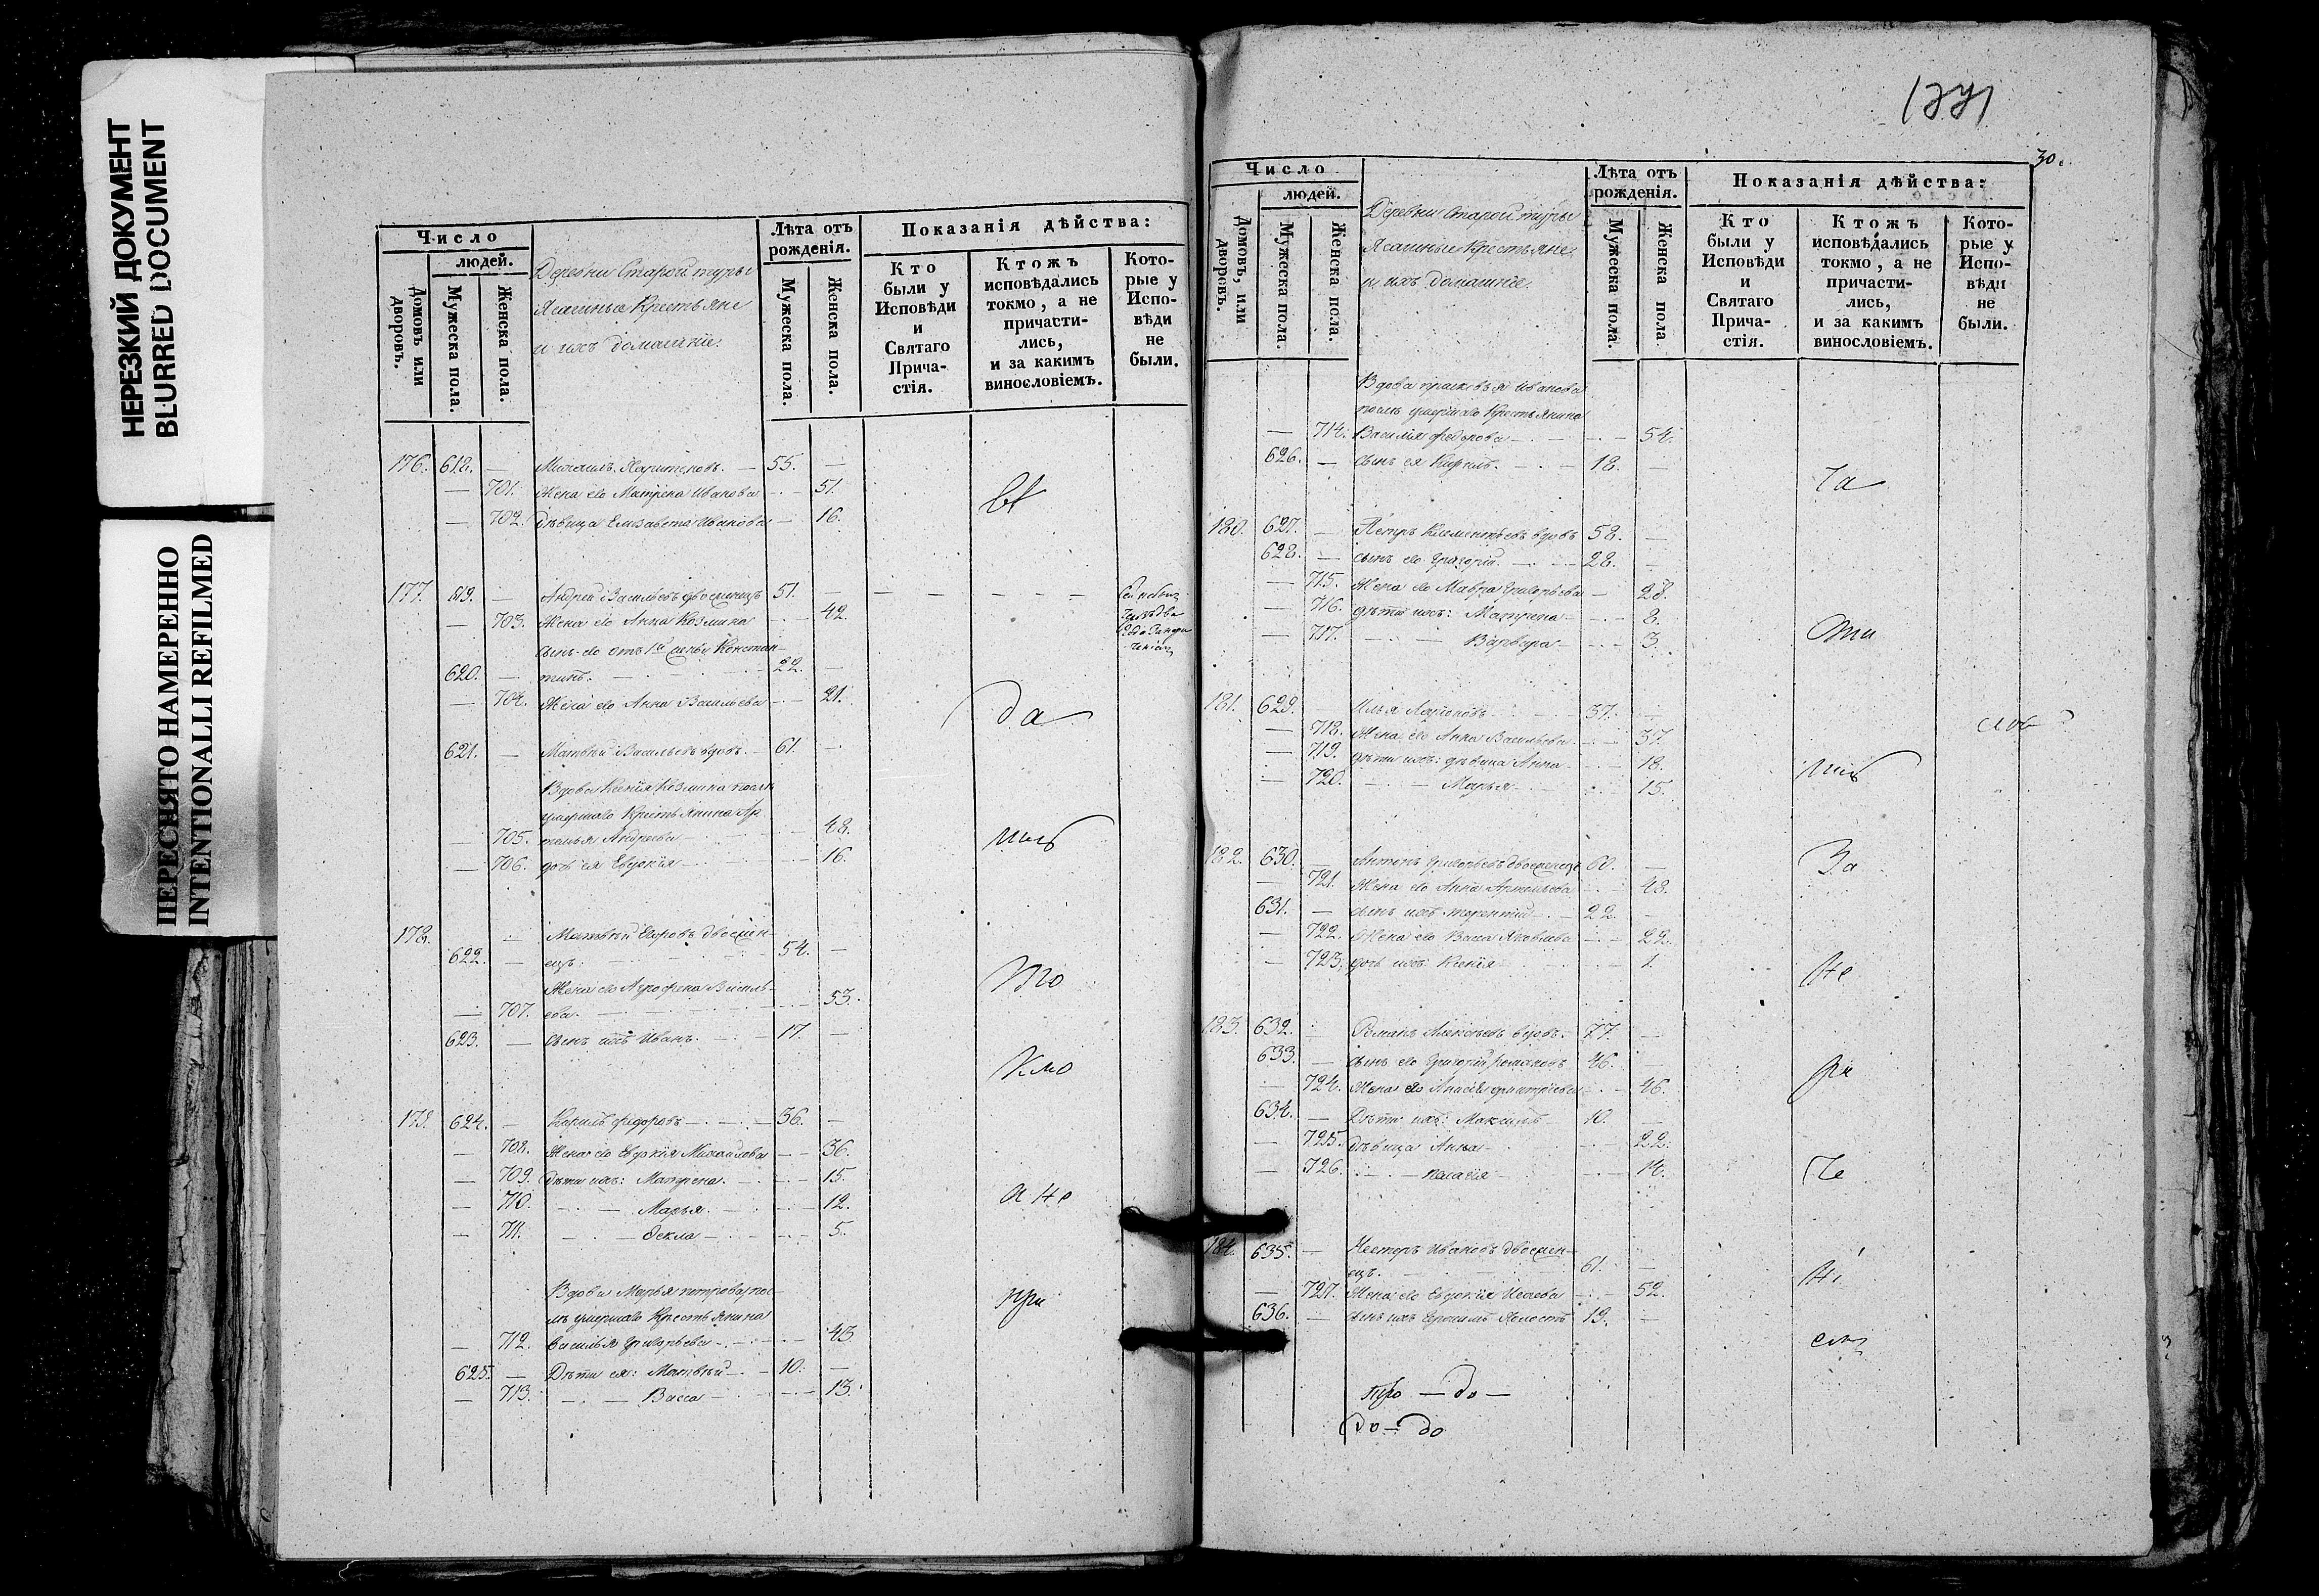 НЕРЕЗКИЙ ДОКУМЕНТ
BLURRED DOCUMENT
ПЕРЕСНЯТО НАМЕРЕННО
INTENTIONALLI REFILMED
Число
людей.
Домовъ или дворовъ.
Мужеска пола.
Женска пола.
Деревни Старой туры
Ясашные Крестьяне
и ихъ домашніе.
Лѣта отъ рожденія.
Мужеска пола.
Женска пола.
Показанія дѣйства:
Кто были у Исповѣди и Святаго Прича-стія.
Ктожъ исповѣдались токмо, а не причасти-лись, и за какимъ винословіемъ.
Кото-рые у Испо-вѣди не были.
176. 618. — Михаилъ Харитоновъ. — 55. —
— 701. Жена его Матрена Иванова — 51.
— 702. Дѣвица Елизавета Иванова — 16.
177. 619. — Андрей Васильевъ двоеженецъ 51. —
— 703. Жена его Анна Козмина — 42.
сынъ его отъ 1й жены Констан-
620. — тинъ. — 22. —
— 704. Жена его Анна Васильева — 21.
да
621. — Матвѣй Васильевъ вдовъ. — 61. —
Вдова Ксенія Козмина послѣ
умершаго Крестьянина Ар
— 705. темья Андреева — 48.
— 706. дочь ея Евдокія — 16.
178. — Матвѣй Егоровъ двоежен-
622. — ецъ. — 54. —
Жена его Агрофена Василь-
— 707. ева. — 53.
623. — сынъ ихъ Иванъ. — 17. —
кмо
179. 624. — Кирилъ федоровъ — 36. —
— 708. Жена его Евдокія Михайлова — 36.
— 709. Дѣти ихъ: Матрена. — 15.
— 710. — Марья. — 12.
— 711. — Фекла — 5.
а не
Вдова Марья петрова пос-
лѣ умершаго Крестьянина
— 712. Василья Григорьева — 43.
при
625. — Дѣти ея: Матвѣй — 10. —
— 713. — Васса — 13.
1771
30.
Число
людей.
Домовъ, или дворовъ.
Мужеска пола.
Женска пола.
Деревни Старой туры
Ясашные Крестьяне
и ихъ домашніе.
Лѣта отъ рожденія.
Мужеска пола.
Женска пола
Показанія дѣйства:
Кто были у Исповѣди и Святаго Прича-стія.
Ктожъ исповѣдались токмо, а не причасти-лись, и за какимъ винословіемъ.
Кото-рые у Испо-вѣди не были.
Вдова прасковья Иванова
послѣ умершаго Крестьянина
— 714. Василія федорова — 54.
626. — сынъ ея Кирилъ. — 18. —
ча
180. 627. — Петръ Климентьевъ вдовъ 58. —
628. — сынъ его Григорій. — 28. —
— 715. Жена его Мавра Григорьева — 28.
— 716. дѣти ихъ: Матрена — 8.
— 717. — Варвара — 3.
сти
181. 629. — Илья Ларіоновъ — 37. —
— 718. Жена его Анна Васильева. — 37.
— 719. дѣти ихъ: дѣвица Анна — 18.
— 720. — Марья — 15.
лись
182. 630. — Антонъ Григорьевъ двоеженецъ 60. —
За
— 721. Жена его Анна Артемьева — 48.
631. — сынъ ихъ терентій — 22. —
— 722. Жена его Васса Яковлева — 22.
— 723. дочь ихъ Ксенія — 1.
не
183. 632. — Романъ Алексѣевъ вдовъ. 77. —
633. — сынъ его Григорій романовъ 46. —
— 724. Жена его Анасія дмитріева — 46.
634. — Дѣти ихъ: Максимъ 10. —
— 725. Дѣвица Анна — 22.
— 726. — палагія — 14.
че
184. 635. — Несторъ Ивановъ двоежен-
ецъ. — 61. —
— 727. Жена его Евдокія Исаева — 52.
636. — сынъ ихъ Ерофимъ Холостъ 19. —
про — до —
до — до